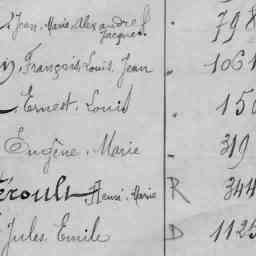 Jean. Marie. Alexandre
Jacques. " 798
François. Louis. Jean " 1061
Ernest. Louis " 150
Eugène. Marie " 319
éroult Henri. Marie R 344
Jules. Emile D 1125